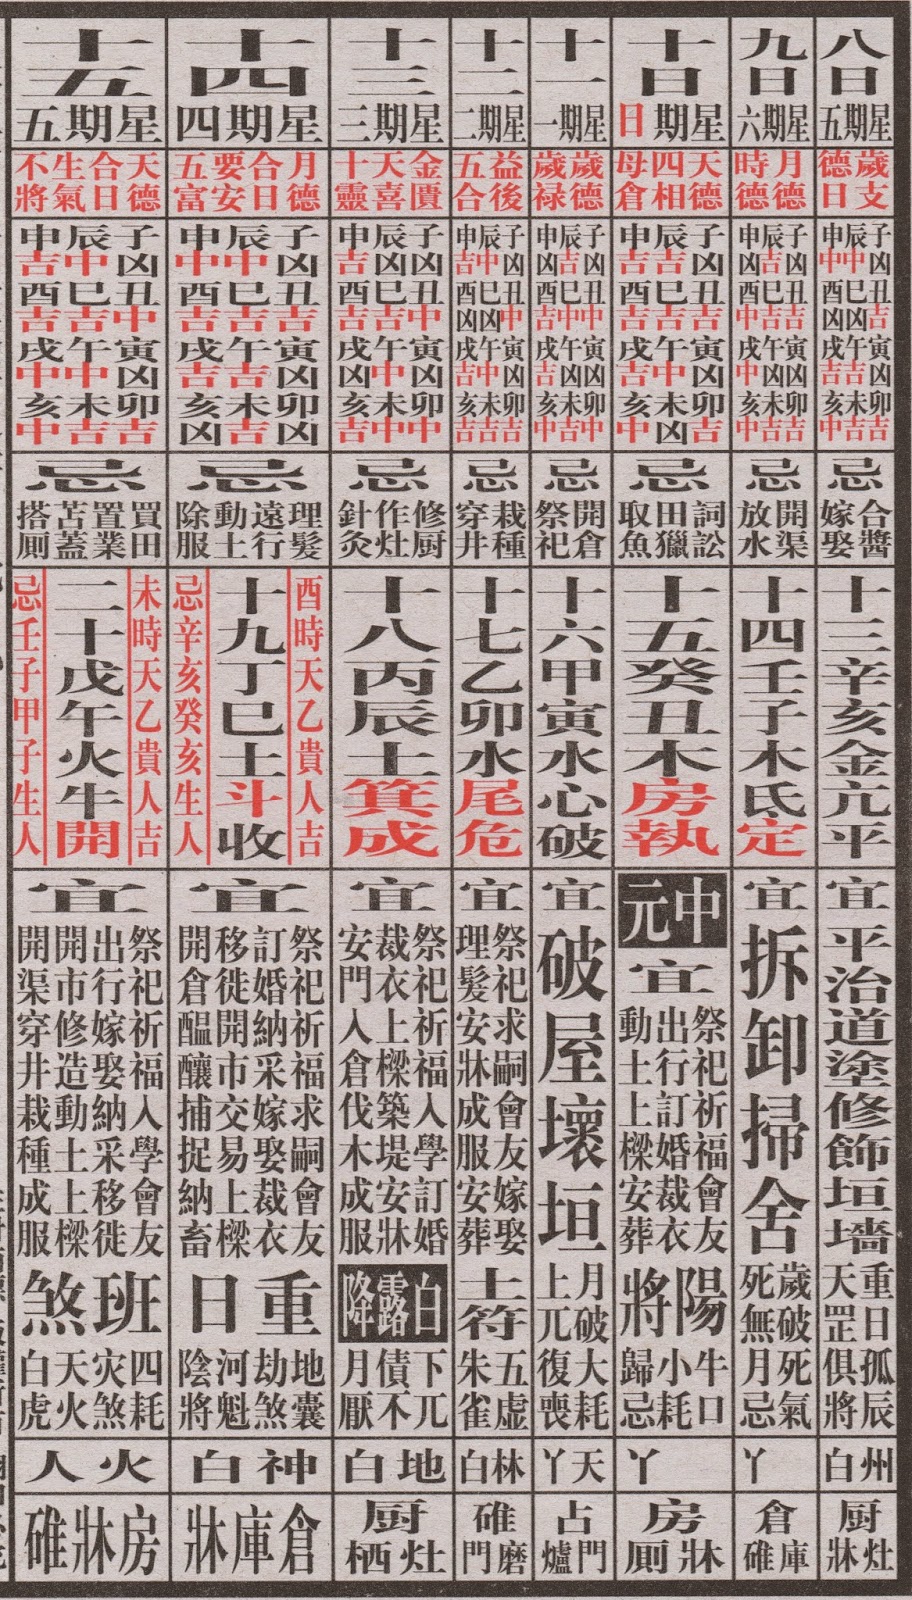 八日
星期五
歲支
德日
子凶丑吉寅凶卯吉
辰中巳凶午吉未中
申中酉凶戌吉亥中
忌
合醬
嫁娶
十三辛亥金亢平
宜
平治道塗修飾垣墻
重日孤辰
天罡俱將
州白
厨灶
牀
九日
星期六
月德
時德
子凶丑吉寅凶卯吉
辰吉巳吉午凶未吉
申凶酉中戌中亥中
忌
開渠
放水
十四壬子木氐定
宜
拆卸掃舍
歲破死氣
死無月忌
丫
倉庫
碓
十日
星期日
天德
四相
母倉
子凶丑吉寅凶卯吉
辰吉巳吉午中未凶
申吉酉吉戌中亥中
忌
詞訟
田獵
取魚
十五癸丑木房執
中元
宜
祭祀祈福會友
出行訂婚裁衣
動土上樑安葬
陽將
牛口
小耗
歸忌
丫
房
牀厠
十一
星期一
歲德
歲祿
子凶丑中寅凶卯中
辰吉巳中午凶未吉
申凶酉吉戌吉亥中
忌
開倉
祭祀
十六甲寅水心破
宜
破屋壞垣
月破大耗
上兀復喪
天丫
占門
爐
十二
星期二
益後
五合
子凶丑中寅凶卯吉
辰中巳凶午中未吉
申吉酉凶戌吉亥吉
忌
栽種
穿井
十七乙卯水尾危
宜
祭祀求嗣會友嫁娶
理髮安牀成服安葬
土符
五虛
朱雀
林白
碓磨
門
十三
星期三
金匱
天喜
十靈
子凶丑中寅凶卯中
辰凶巳吉午中未中
申吉酉吉戌凶亥吉
忌
修厨
作灶
針灸
十八丙辰土箕成
宜
祭祀祈福入學訂婚
裁衣上樑築堤安牀
安門入倉伐木成服
白露降
下兀
債不
月厭
地白
厨灶
栖
十四
星期四
月德
合日
要安
五富
子凶丑吉寅凶卯凶
辰中巳吉午吉未吉
申中酉吉戌吉亥凶
忌
理髮
遠行
動土
除服
酉時天乙貴人吉
十九丁巳土斗收
忌辛亥癸亥生人
宜
祭祀祈福求嗣會友
訂婚納采嫁娶裁衣
移徙開市交易上樑
開倉醞釀捕捉納畜
重日
地囊
劫煞
河魁
陰將
神白
倉庫牀
十五
星期五
天德
合日
生氣
不將
子凶丑中寅凶卯吉
辰中巳吉午中未吉
申吉酉吉戌中亥中
忌
買田
置業
苫蓋
搭厠
未時天乙貴人吉
二十戊午火牛開
忌壬子甲子生人
宜
祭祀祈福入學會友
出行嫁娶納采移徙
開市修造動土上樑
開渠穿井栽種成服
班煞
四耗
灾煞
天火
白虎
火人
房牀碓